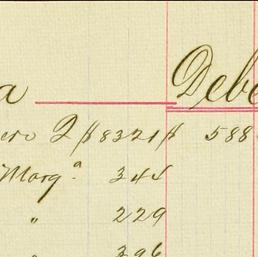 a Debe
ero 2 $ 8321 $ 588
Marg.ª 344
" 229
" 396